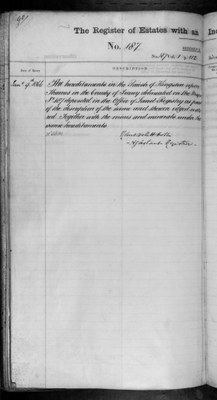 The Register of Estates with an In
No. 187.
Date of Entry
DESCRIPTION
Jan. 9th 1865
The hereditaments in the Parish of Kingston upon
Thames in the County of Surrey delineated on the Map
No. 187 deposited in the Office of Land Registry as part
of the description of the same and thereon edged with
red. Together with the mines and minerals under the
same hereditaments
Assistant Registrar